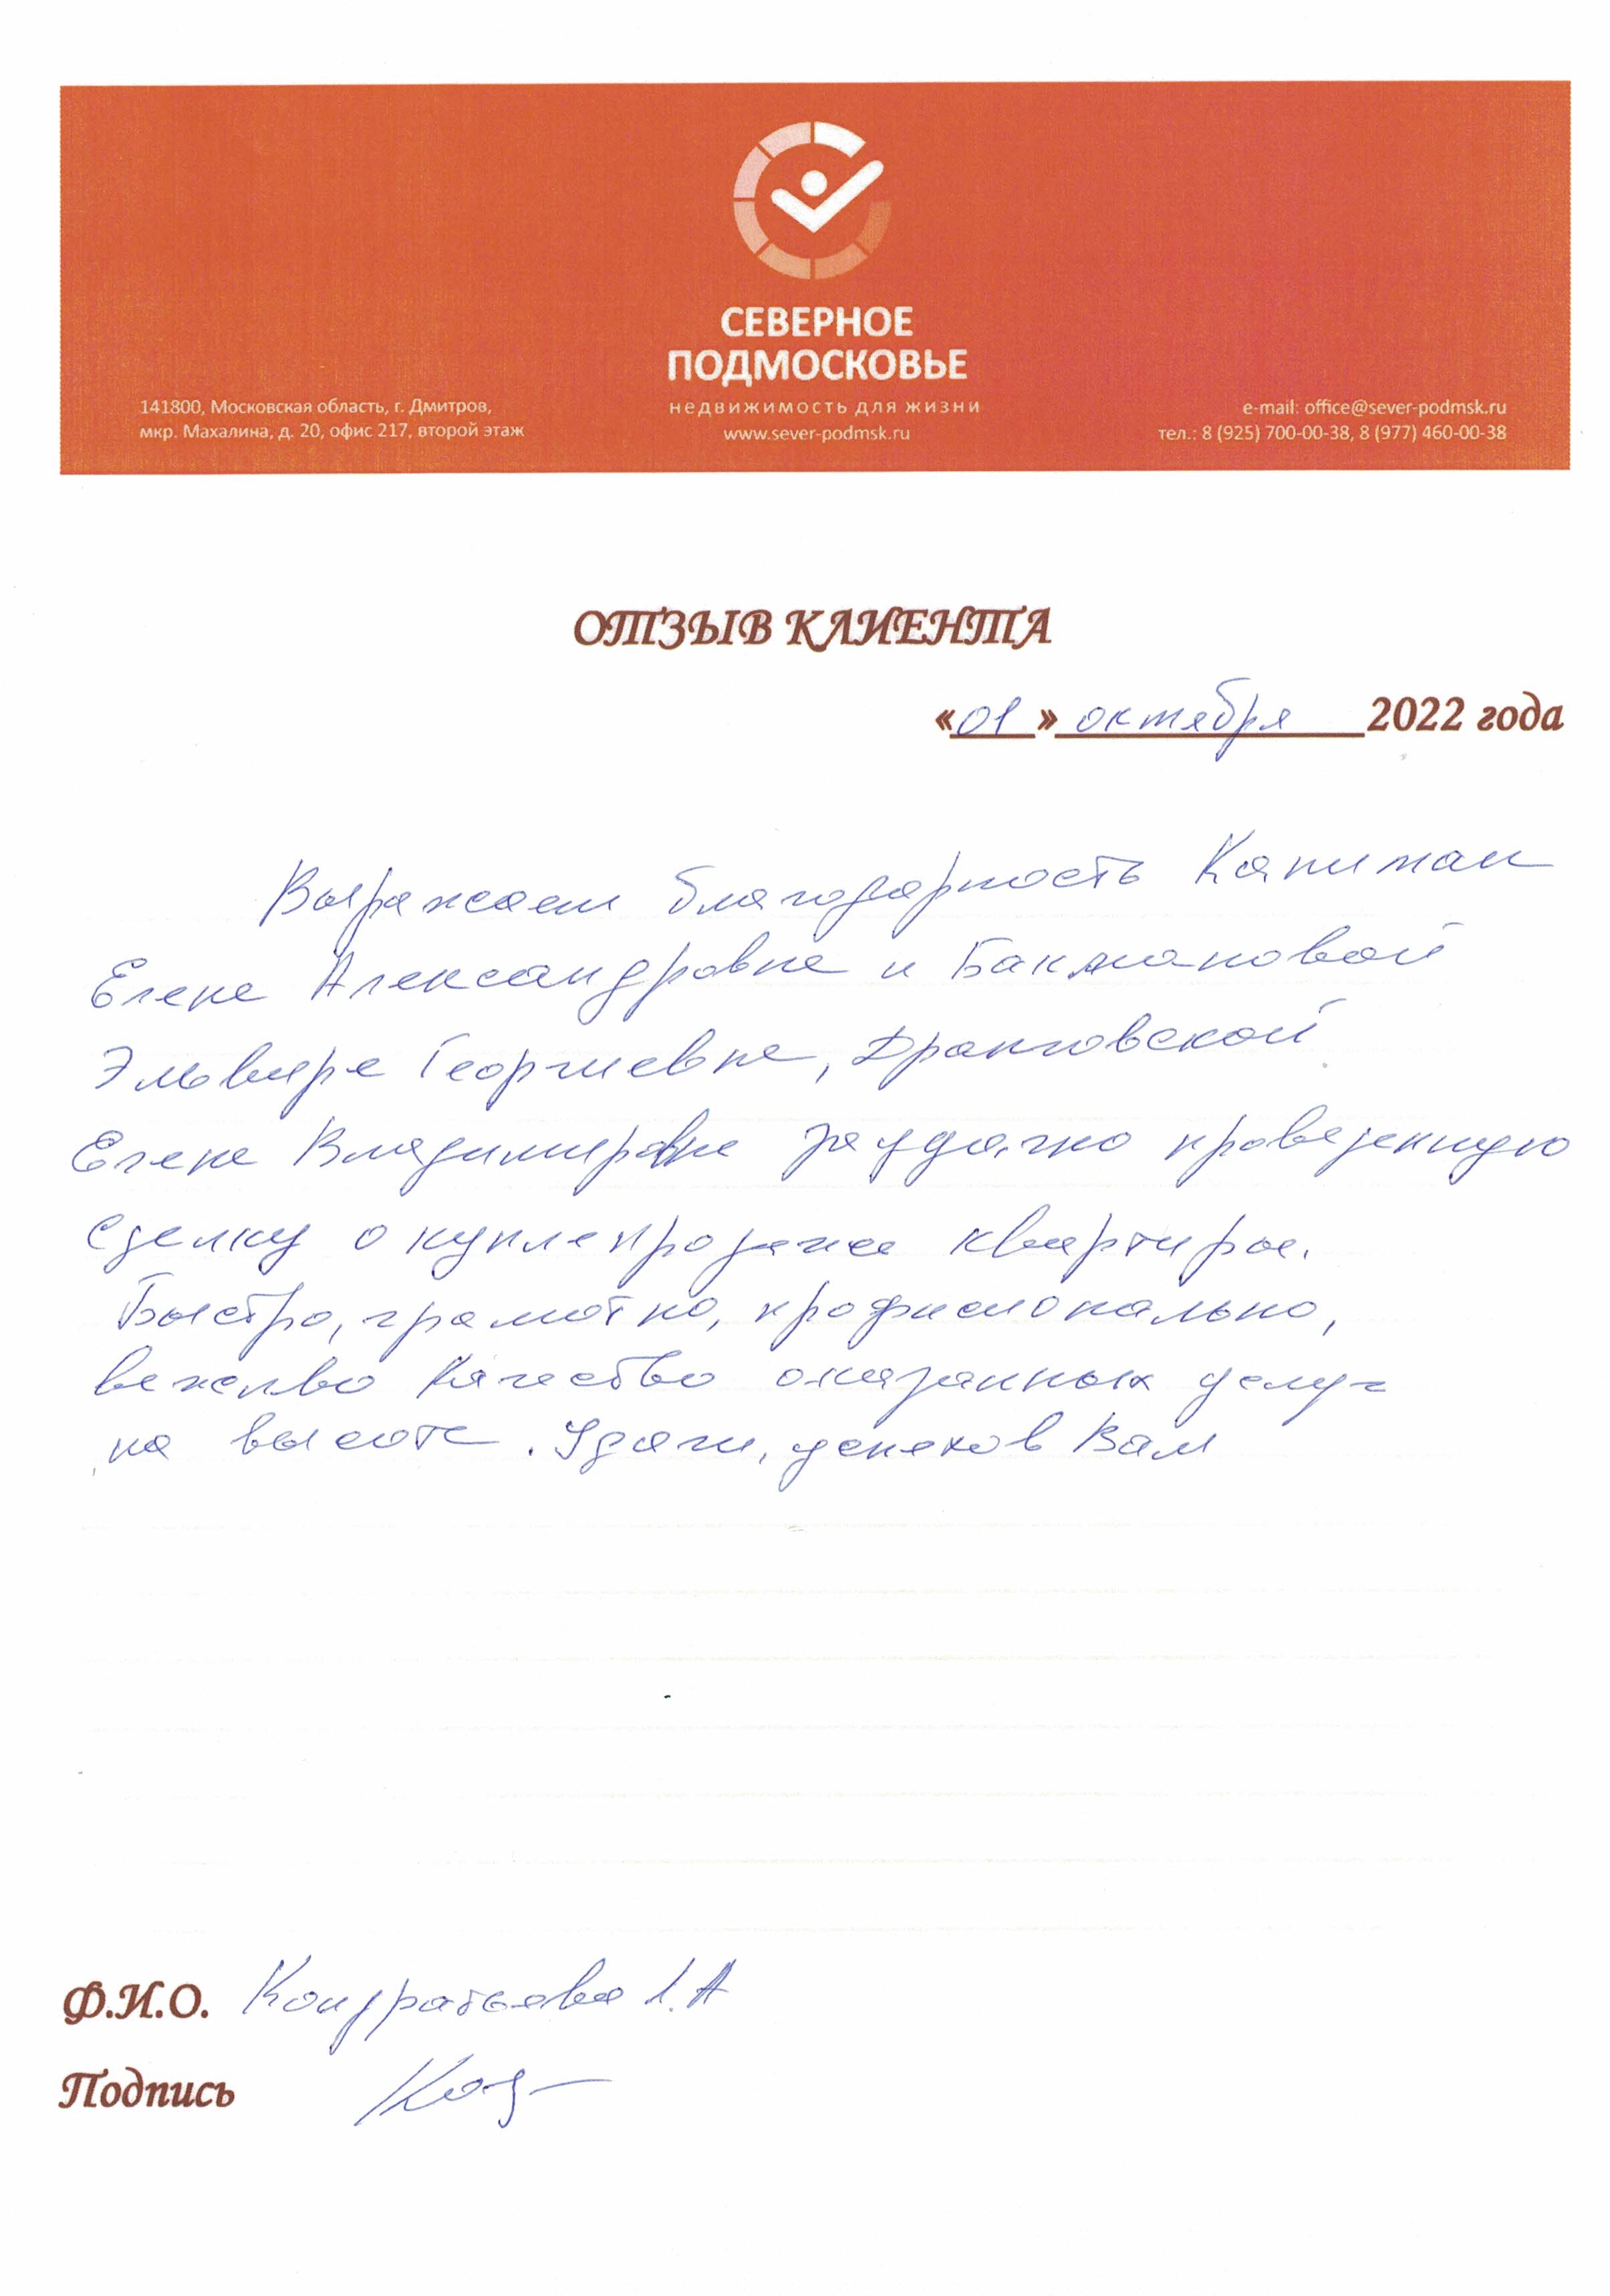 СЕВЕРНОЕ
ПОДМОСКОВЬЕ
недвижимость для жизни
www.sever-podmsk.ru
141800, Московская область, г. Дмитров,
мкр. Махалина, д. 20, офис 217, второй этаж
e-mail: office@sever-podmsk.ru
тел.: 8 (925) 700-00-38, 8 (977) 460-00-38
ОТЗЫВ КЛИЕНТА
«01» октября 2022 года
Выражаем благодарность
Елене Александровне и Бакмановой
Эльвире Георгиевне,
Елене Владимировне за удачно проведенную
сделку о куплепродаже квартиры.
Быстро, грамотно, профисионально,
вежливо Качество оказанных услуг
на высоте. Удачи, успехов Вам
Ф.И.О. Кондратьева Л.А
Подпись